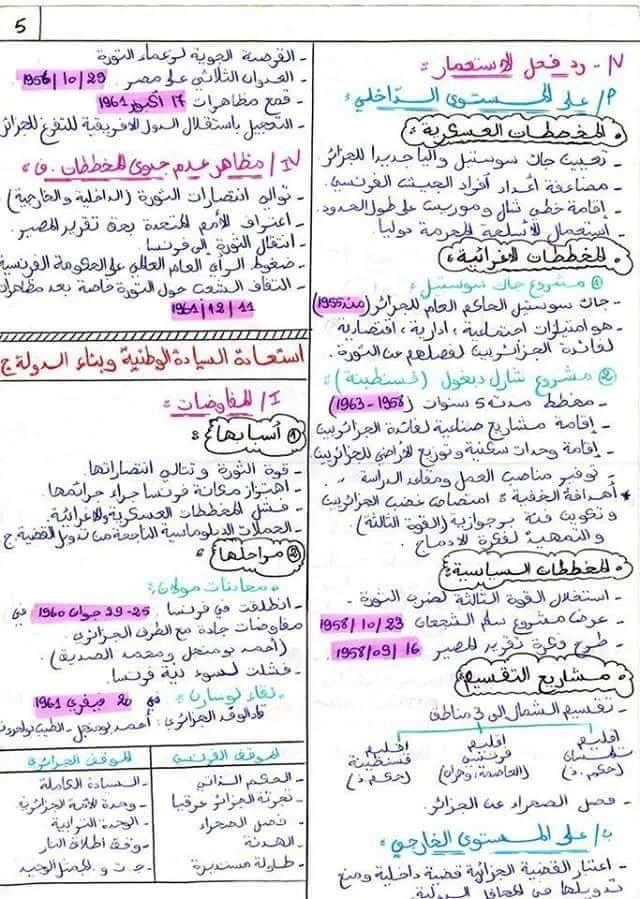 5
IV - رد فعل الاستعمار:
أ/ على المستوى الداخلي:
• المخططات العسكرية:
- تعيين جاك سوستيل واليا جديدا للجزائر.
- مضاعفة أعداد أفراد الجيش الفرنسي.
- إقامة خطي شال وموريس على طول الحدود.
- استعمال الأسلحة المحرمة دوليا.
• المخططات الإغرائية:
① مشروع جاك سوستيل:
- جاك سوستيل الحاكم العام للجزائر (منذ 1955)
- هو امتيازات اجتماعية، ادارية، اقتصادية
لفائدة الجزائريين لفصلهم عن الثورة.
② مشروع شارل ديغول (قسنطينة):
- مخطط مدته 5 سنوات (1958 - 1963)
- إقامة مشاريع صناعية لفائدة الجزائريين
- إقامة وحدات سكنية وتوزيع الأراضي للجزائريين
- توفير مناصب العمل ومقاعد الدراسة
* أهدافه الخفية: امتصاص غضب الجزائريين
وتكوين فئة برجوازية (القوة الثالثة)
والتمهيد لفكرة الادماج.
• المخططات السياسية:
- استغلال القوة الثالثة لضرب الثورة.
- عرض مشروع سلم الشجعان 23/10/1958
- طرح فكرة تقرير المصير 16/09/1958.
• مشاريع التقسيم:
- تقسيم الشمال إلى 3 مناطق
اقليم تلمسان (حكم. ذ)
اقليم فرنسي (العاصمة، وهران)
اقليم قسنطينة (حكم. ذ)
- فصل الصحراء عن الجزائر.
ب/ على المستوى الخارجي:
- اعتبار القضية الجزائرية قضية داخلية ومنع
تدويلها في المحافل الدولية.
- القرصنة الجوية لزعماء الثورة
- العدوان الثلاثي على مصر. 29/10/1956
- قمع مظاهرات 17 أكتوبر 1961
- التعجيل باستقلال الدول الافريقية للتفرغ للجزائر
IV/ مظاهر عدم جدوى المخططات. ف:
- توالي انتصارات الثورة (الداخلية والخارجية)
- اعتراف الأمم المتحدة بحق تقرير المصير.
- انتقال الثورة إلى فرنسا.
- ضغوط الرأي العام العالمي على الحكومة الفرنسية
- التفاف الشعب حول الثورة خاصة بعد مظاهرات
11/12/1961
استعادة السيادة الوطنية وبناء الدولة ج
I/ المفاوضات:
① أسبابها:
- قوة الثورة وتتالي انتصاراتها.
- اهتزاز مكانة فرنسا جراء جرائمها.
- فشل المخططات العسكرية والاغرائية.
- الحملات الدبلوماسية الناجحة من تدويل القضية ج
② مراحلها:
• محادثات مولان:
- انطلقت في فرنسا 25-29 جوان 1960 في
مفاوضات جادة مع الطرف الجزائري
(أحمد بومنجل ومحمد الصديق)
- فشلت لسوء نية فرنسا.
• لقاء لوسارن: في 20 فيفري 1961
قاد الوفد الجزائري: أحمد بومنجل - الطيب بولحروف
الموقف الفرنسي
الموقف الجزائري
- الحكم الذاتي
- السيادة الكاملة
- تجزئة الجزائر عرقيا
- وحدة الأمة الجزائرية
- فصل الصحراء
- الوحدة الترابية
- الهدنة
- وقف اطلاق النار
- طاولة مستديرة
- ج. ت. و الممثل الوحيد